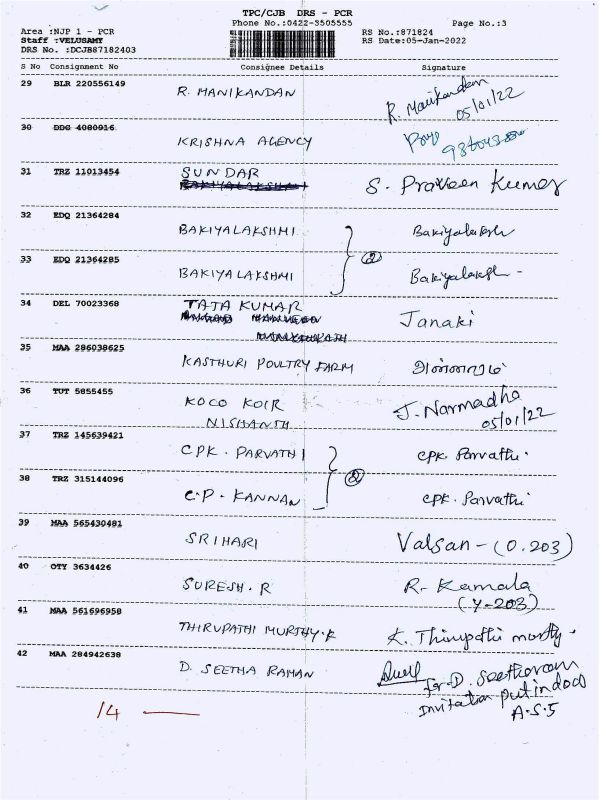 TPC/CJB DRS - PCR
Phone No.:0422-3505555
Page No.:3
Area :NJP 1 - PCR
RS No.:871824
Staff :VELUSAMY
RS Date:05-Jan-2022
DRS No. :DCJB87182403
S No Consignment No Consignee Details Signature
29 BLR 220556149 R. MANIKANDAN R. Manikandan
05/01/22
30 DDG 4080916 KRISHNA AGENCY
31 TRZ 11013454 SUNDAR S. Praveen Kumar
32 EDQ 21364284 BAKIYALAKSHMI Bakiyalaksh
33 EDQ 21364285 BAKIYALAKSHMI (2) Bakiyalaksh -
34 DEL 70023368 TATA KUMAR Janaki
35 MAA 286038625 KASTHURI POULTRY FARM
36 TUT 5855455 KOCO KOIR J. Narmadha
NISHANTH 05/01/22
37 TRZ 145639421 CPK. PARVATHI CPK. Parvathi.
38 TRZ 315144096 C.P. KANNAN (2) CPK. Parvathi
39 MAA 565430481 SRIHARI Valsan - (0.203)
40 OTY 3634426 SURESH.R R. Kamala
(Y-203)
41 MAA 561696958 THIRUPATHI MURTHY.K K. Thirupathi murthy.
42 MAA 284942638 D. SEETHA RAMAN
for D. Seetharam
Invitation put in door
A.S.5
14 —